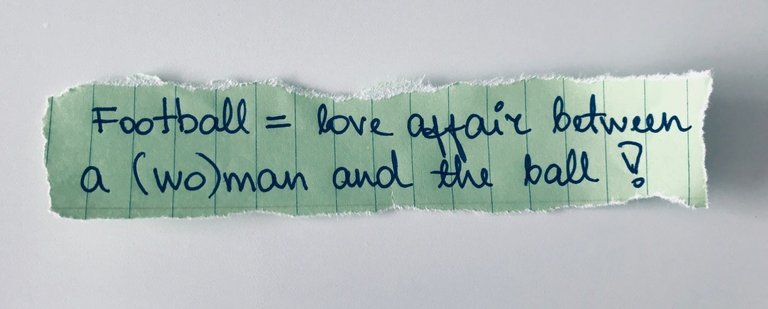 Football = love affair between
a (wo)man and the ball !